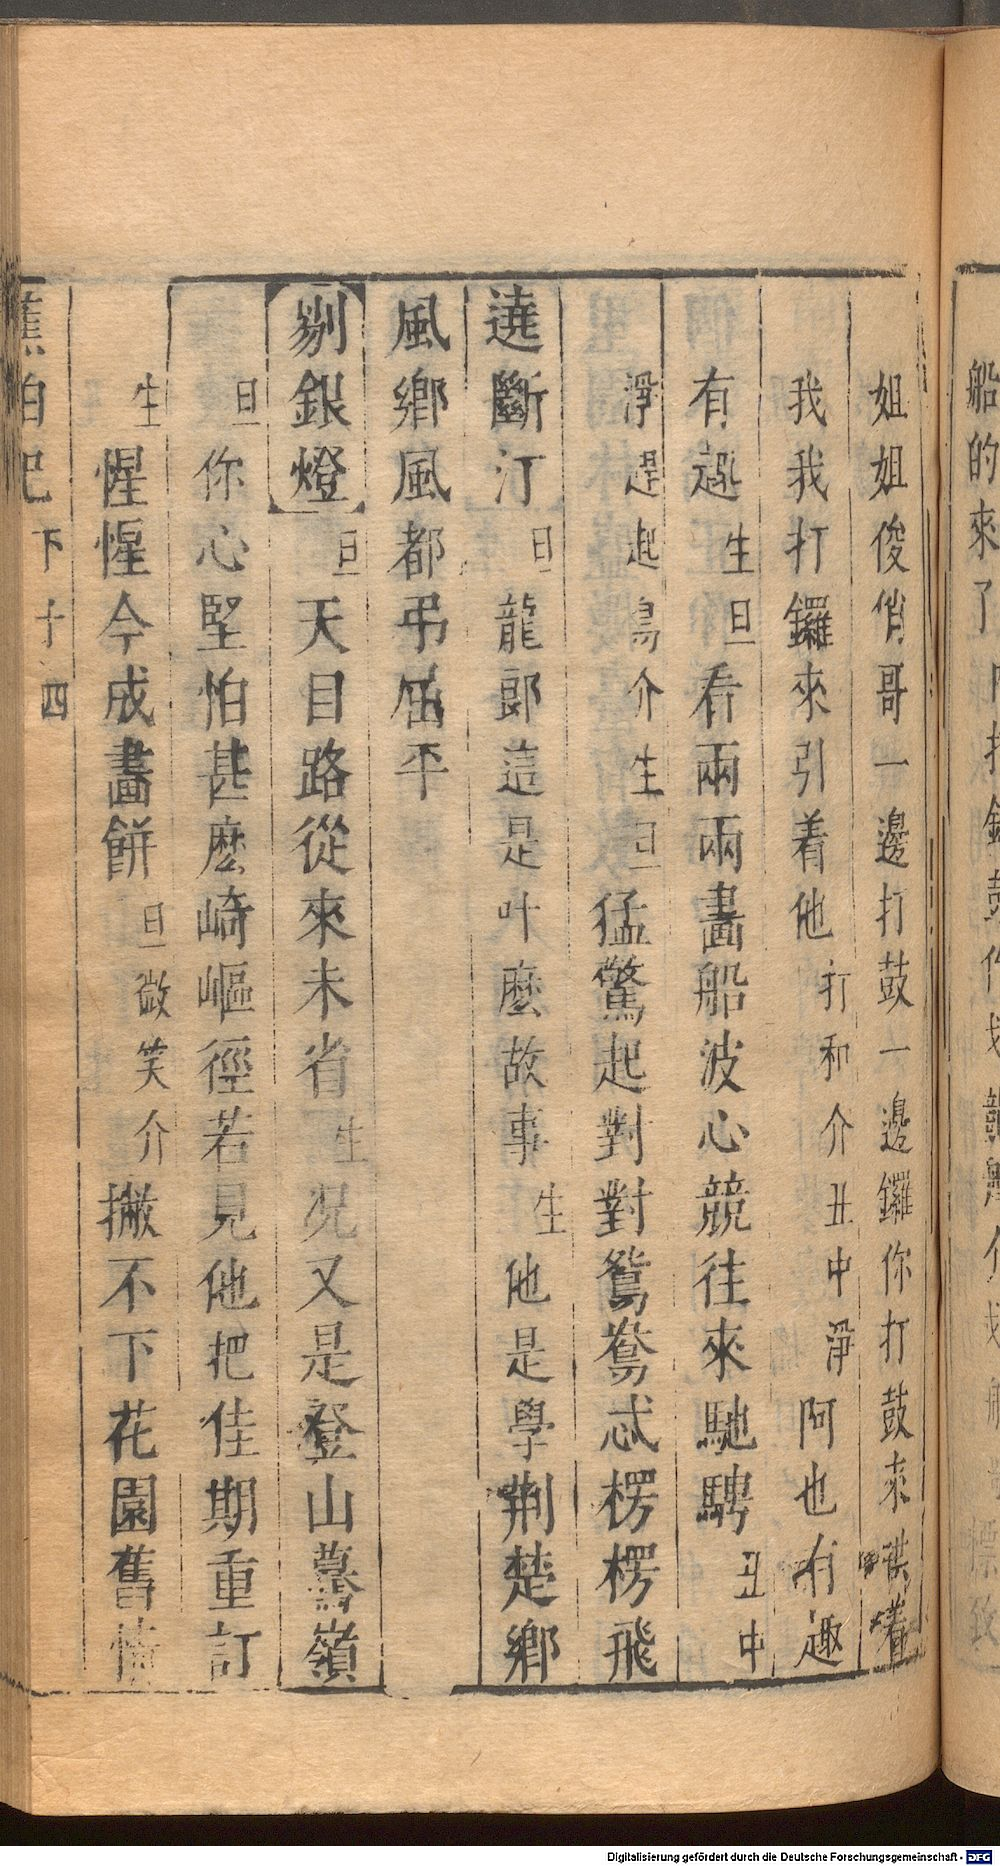 船的來了
姐姐俊俏哥一邊打鼓一邊鑼你打鼓來
我我打鑼來引着他打和介丑中淨阿也有趣
有趣生旦看兩兩畫船波心競往來馳騁丑中
淨趕起鳥介生旦猛驚起對對鴛鴦忒楞楞飛
遶斷汀旦龍郎這是叶麽故事生他是學荆楚鄉
風鄉風都弔屈平
剔銀燈旦天目路從來未省生況又是登山驀嶺
旦你心堅怕甚麽崎嶇徑若見他把佳期重訂
生惺惺今成畫餅旦微笑介撇不下花園舊情
蕉帕記 下 十四
Digitalisierung gefördert durch die Deutsche Forschungsgemeinschaft - DFG